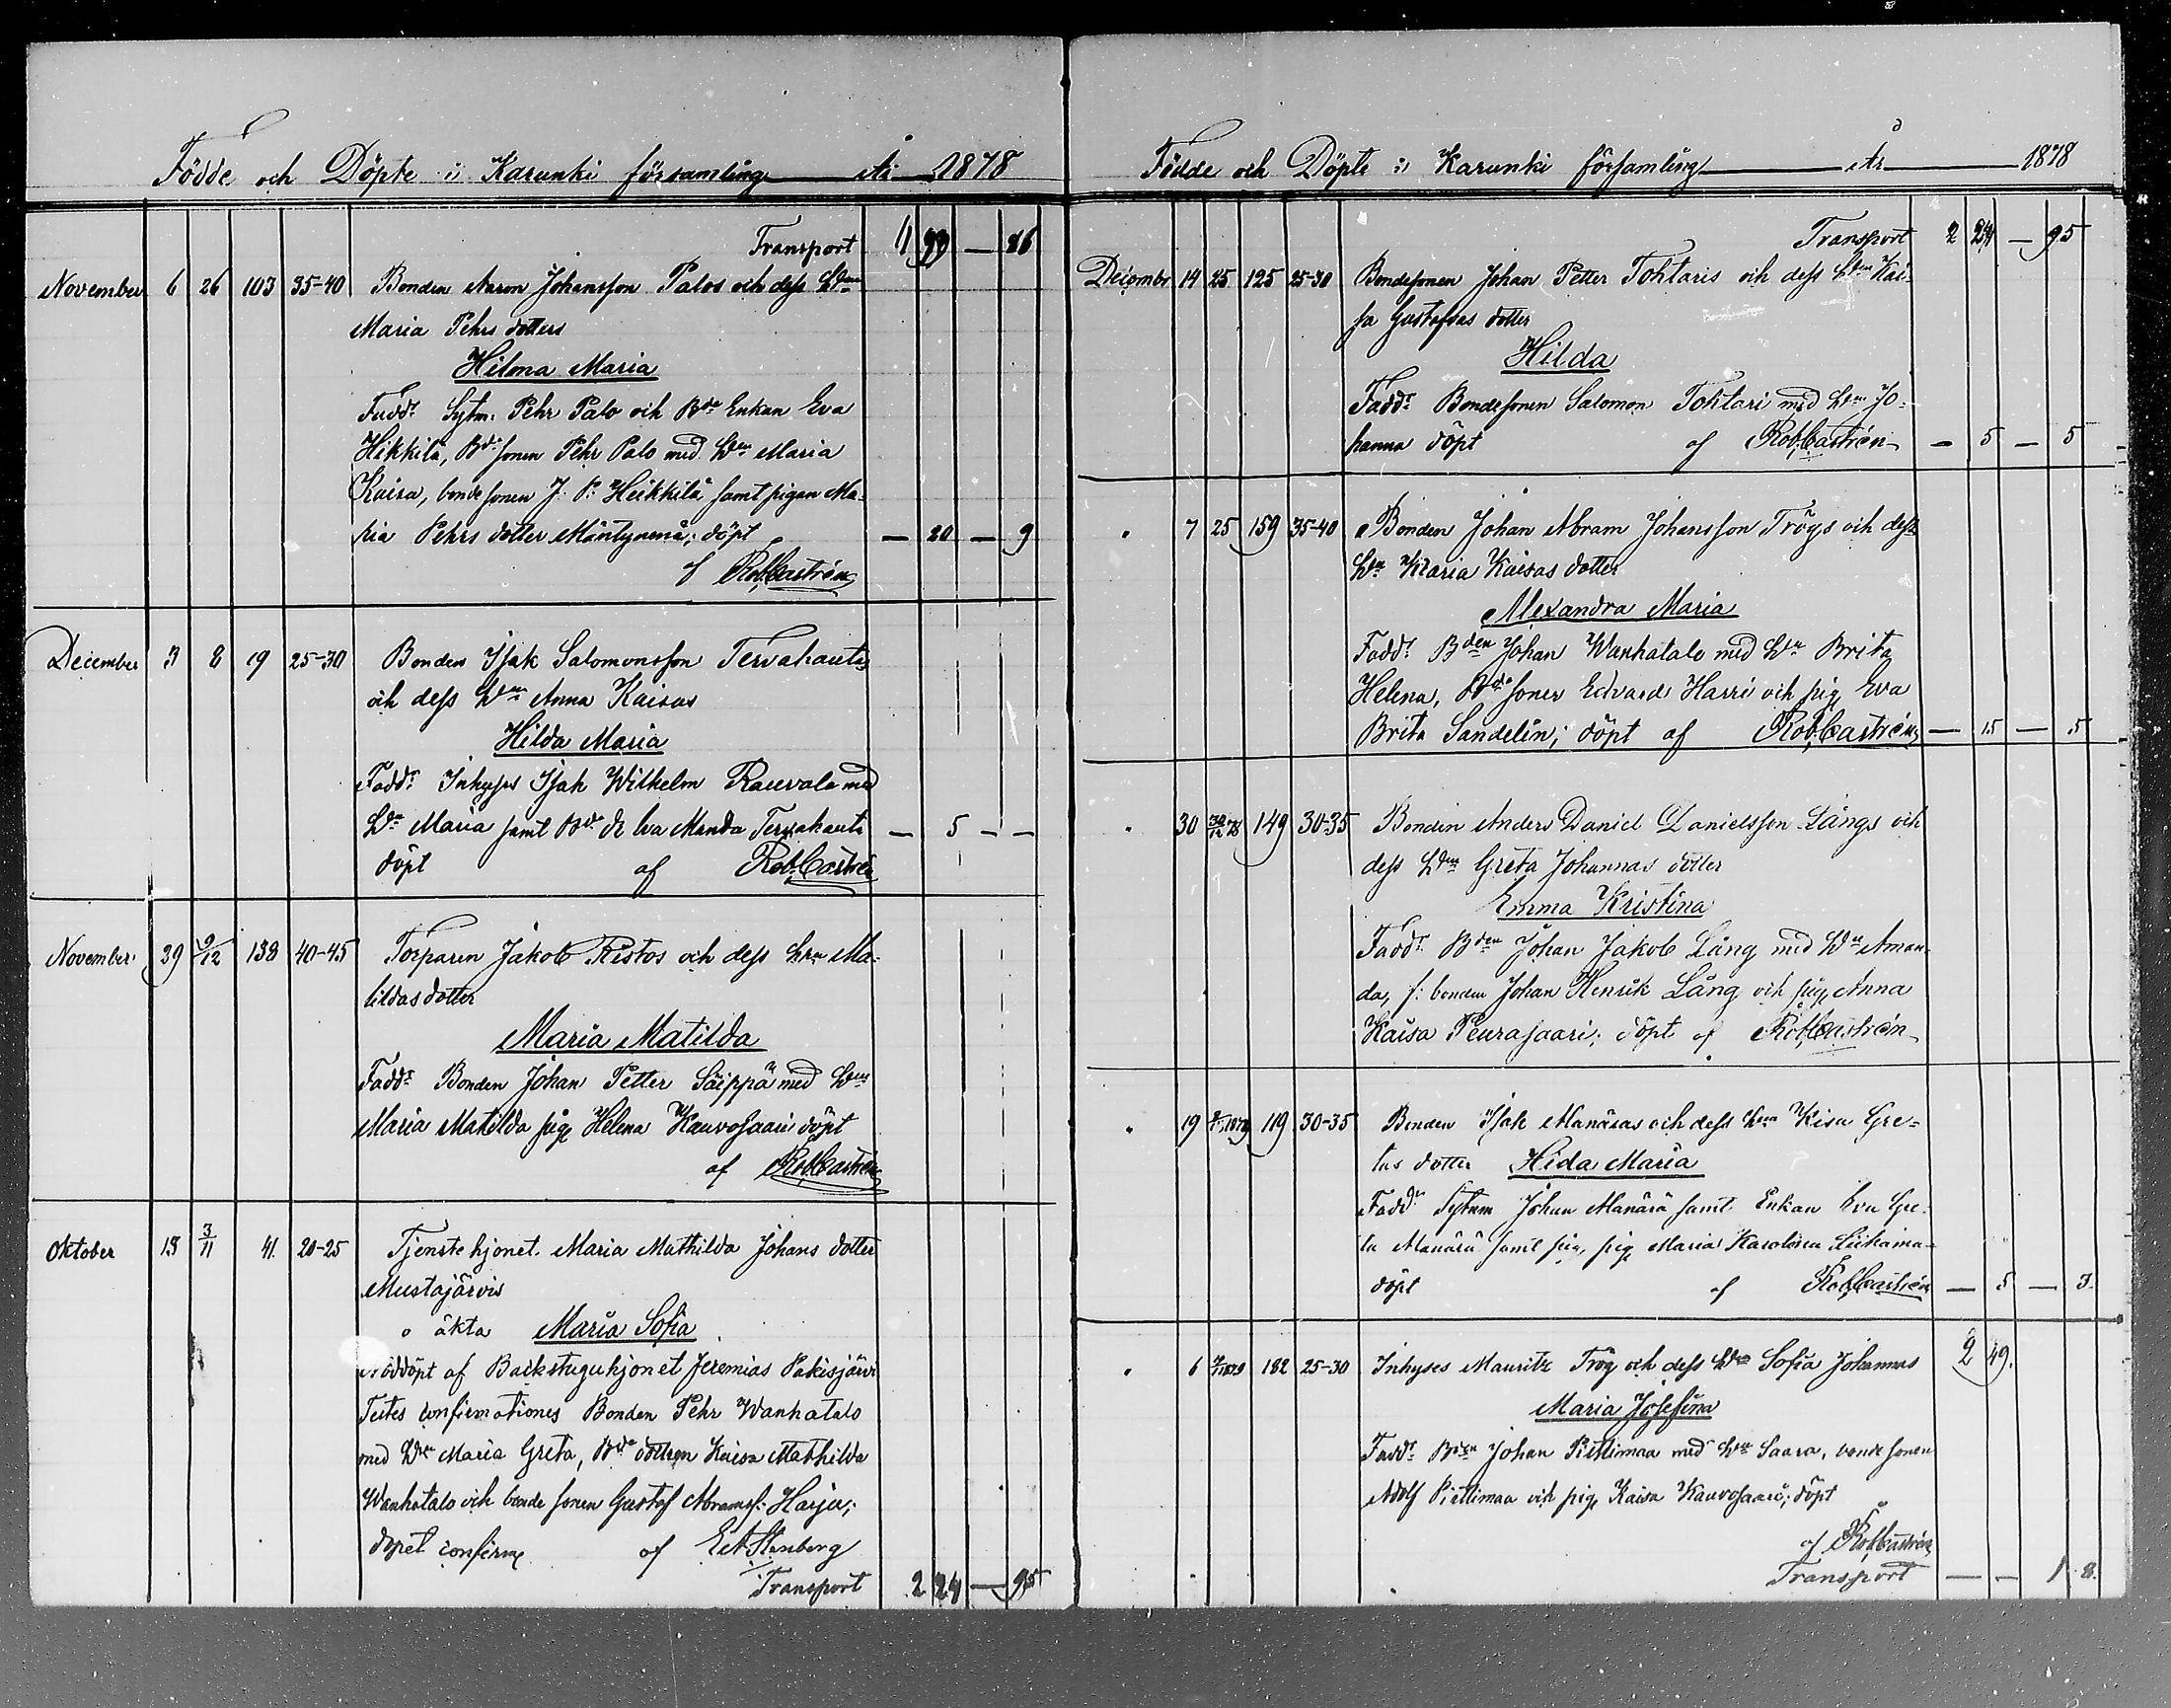 Födde och Döpte i Karunki församling År 1878
Transport 1 99 — 86
November 6 26 103 35-40 Bonden Aaron Johansson Palos och dess h:u
Maria Pehrs dotters
Hilma Maria
Fadd:r Sytm. Pehr Palo och Bde Enkan Eva
Hikkilä, Bde sonen Pehr Palo med h:u Maria
Kaisa, bondesonen J. P. Heikkilä samt pigan Ma-
ria Pehrs dotter Mäntyvena; döpt — 20 — 9
af Rob. Castrén
December 3 8 19 25-30 Bonden Isak Salomonsson Tervahauta
och dess h:u Anna Kaisas
Hilda Maria
Fadd:r Inhyses Isak Wilhelm Rauvala med
h:u Maria samt Bde dr Eva Manda Tervahauta — 5 — —
döpt af Rob. Castrén
November 29 9/12 138 40-45 Torparen Jakob Ristos och dess h:u Ma-
tildas dotter
Maria Matilda
Fadd:r Bonden Johan Petter Säippä med h:u
Maria Matilda pig. Helena Kauvosaari döpt
af Rob. Castrén
Oktober 13 3/11 41. 20-25 Tjenstehjonet Maria Mathilda Johans dotter
Mustajärvis
o äkta Maria Sofia
Nöddöpt af Backstuguhjonet Jeremias Pakisjärvi
Testes confirmationes Bonden Pehr Wanhatalo
med h:u Maria Greta, Bde dottren Kaisa Mathilda
Wanhatalo och bondesonen Gustaf Abramss: Harju;
dopet confirm af E. A. Stenberg
Transport 2 24 — 95
Födde och Döpte i Karunki församling År 1878
Transport 2 24 — 95
Decembr 14 25 125 25-30 Bondesonen Johan Petter Tohtaris och dess h:u Kai-
sa Gustafvas dotter
Hilda
Fadd:r Bondesonen Salomon Tohtari med h:u Jo-
hanna döpt af Rob. Castrén — 5 — 5
" 7 25 159 35-40 Bonden Johan Abram Johansson Trögs och dess
h:u Maria Kaisas dotter
Alexandra Maria
Fadd:r Bden Johan Wanhatalo med h:u Brita
Helena, Bde sonen Edvard Harri och pig. Eva
Brita Sandelin; döpt af Rob. Castrén — 15 — 5
" 30 30/12 78 149 30-35 Bonden Anders Daniel Danielsson Långs och
dess h:u Greta Johannas dotter
Emma Kristina
Fadd:r Bden Johan Jakob Lång med h:u Aman-
da, f: bonden Johan Henrik Lång och pig. Anna
Kaisa Peurasaari; döpt af Rob. Castrén
" 19 1879 119 30-35 Bonden Isak Manäras och dess h:u Kisa Gre-
tas dotter Hida Maria
Fadd:r Sytnm Johan Manärä samt Enkan Eva Gre-
ta Manärä samt pig. pig. Maria Karolina Liikama-
döpt af Rob. Castrén — 5 — 3.
" 6 1879 182 25-30 Inhyses Mauritz Trög och dess h:u Sofia Johannas 2 49.
Maria Josefina
Fadd:r Bden Johan Piittimaa med h:u Saara, bondesonen
Adolf Piittimaa och pig. Kaisa Kauvosaari; döpt
af Rob. Castrén
Transport — — 1 8.